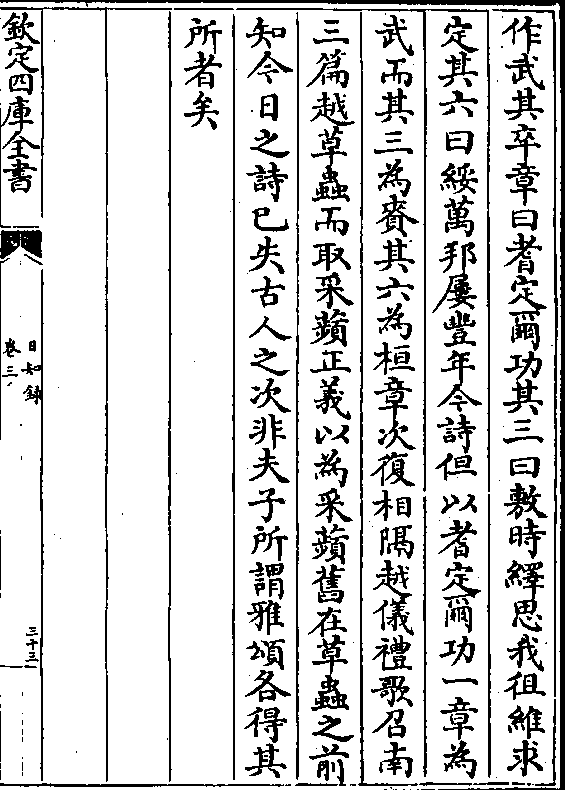 作武其卒章曰耆定爾功其三曰敷時繹思我徂維求
定其六曰綏萬邦屢豐年今詩但以耆定爾功一章為
武而其三為賚其六為桓章次復相隔越儀禮歌召南
三篇越草蟲而取采蘋正義以為采蘋舊在草蟲之前
知今日之詩已失古人之次非夫子所謂雅頌各得其
所者矣
欽定四庫全書
日知錄
卷三
三十三